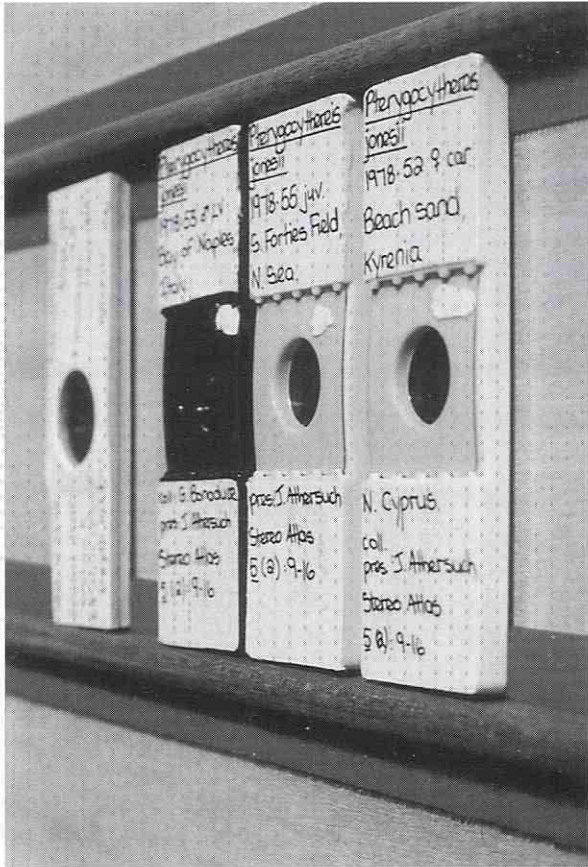 Pterygocythereis
jonesii
1978·53 ♂ LV.
Bay of Naples,
Italy.
coll. G. Bonaduce
pres. J. Athersuch
Stereo Atlas
5 (2): 9-16
Pterygocythereis
jonesii
1978·55 juv.
S. Forties Field,
N. Sea.
pres. J. Athersuch
Stereo Atlas
5 (2): 9-16
Pterygocythereis
jonesii
1978·52 ♀ car
Beach sand,
Kyrenia
N. Cyprus.
coll.
pres J. Athersuch
Stereo Atlas
5 (2): 9-16